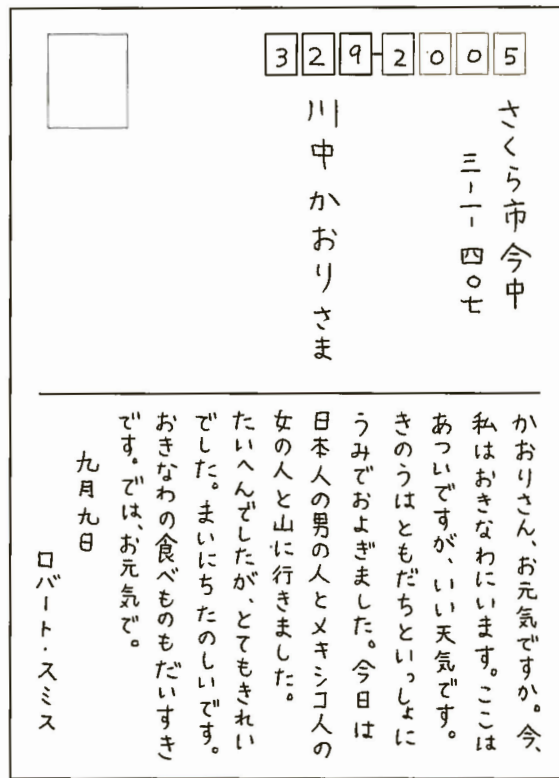 329-2005
さくら市今中
三-一-四〇七
川中かおりさま
かおりさん、お元気ですか。今、
私はおきなわにいます。ここは
あついですが、いい天気です。
きのうはともだちといっしょに
うみでおよぎました。今日は
日本人の男の人とメキシコ人の
女の人と山に行きました。
たいへんでしたが、とてもきれい
でした。まいにちたのしいです。
おきなわの食べものもだいすき
です。では、お元気で。
九月九日
ロバート・スミス